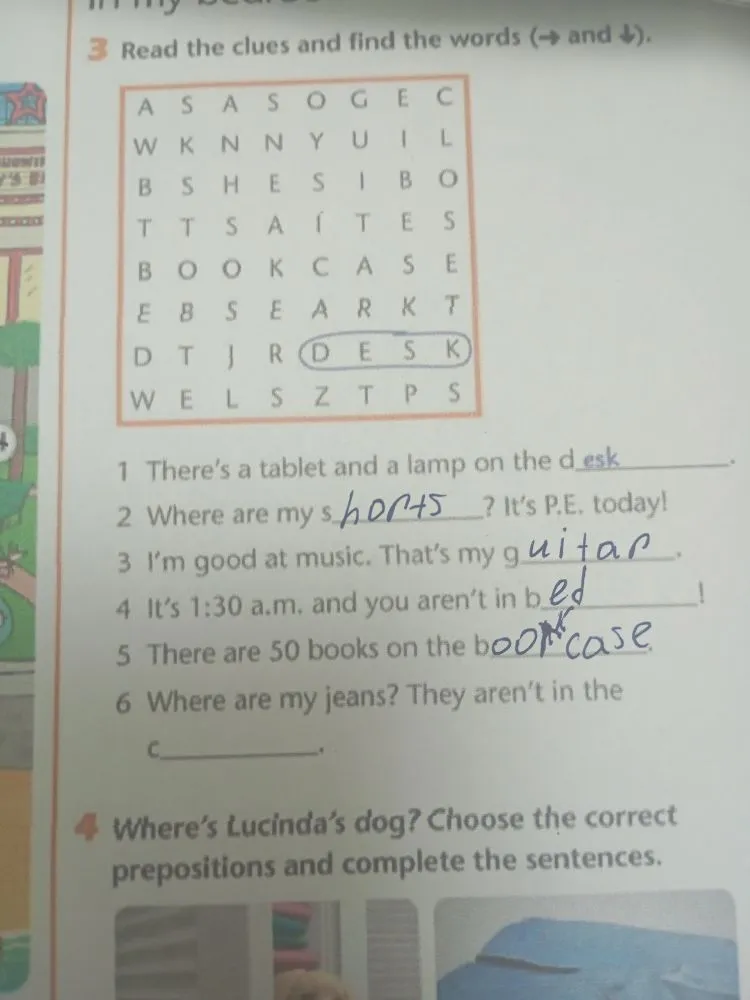 3 Read the clues and find the words (→ and ↓).
A S A S O G E C
W K N N Y U I L
B S H E S I B O
T T S A Í T E S
B O O K C A S E
E B S E A R K T
D T J R D E S K
W E L S Z T P S
1 There's a tablet and a lamp on the desk.
2 Where are my shorts? It's P.E. today!
3 I'm good at music. That's my guitar.
4 It's 1:30 a.m. and you aren't in bed!
5 There are 50 books on the bookcase.
6 Where are my jeans? They aren't in the
c_____.
4 Where's Lucinda's dog? Choose the correct
prepositions and complete the sentences.